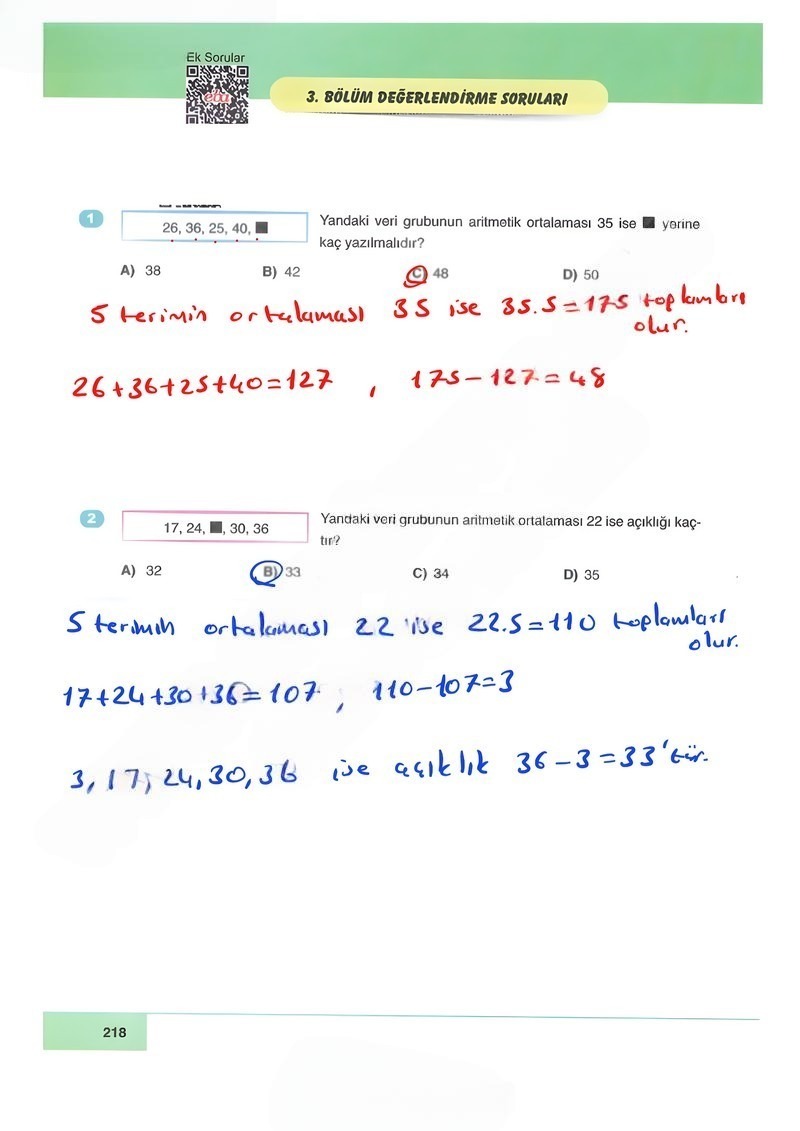 Ek Sorular
eba
3. BÖLÜM DEĞERLENDİRME SORULARI
1
26, 36, 25, 40, ■
Yandaki veri grubunun aritmetik ortalaması 35 ise ■ yerine
kaç yazılmalıdır?
A) 38 B) 42 C) 48 D) 50
5 terimin ortalaması 35 ise 35.5=175 toplamları
olur.
26+36+25+40=127 , 175-127=48
2
17, 24, ■, 30, 36
Yandaki veri grubunun aritmetik ortalaması 22 ise açıklığı kaç-
tır?
A) 32 B) 33 C) 34 D) 35
5 terimin ortalaması 22 ise 22.5=110 toplamları
olur.
17+24+30+36=107 , 110-107=3
3, 17, 24, 30, 36 ise açıklık 36-3=33'tür.
218